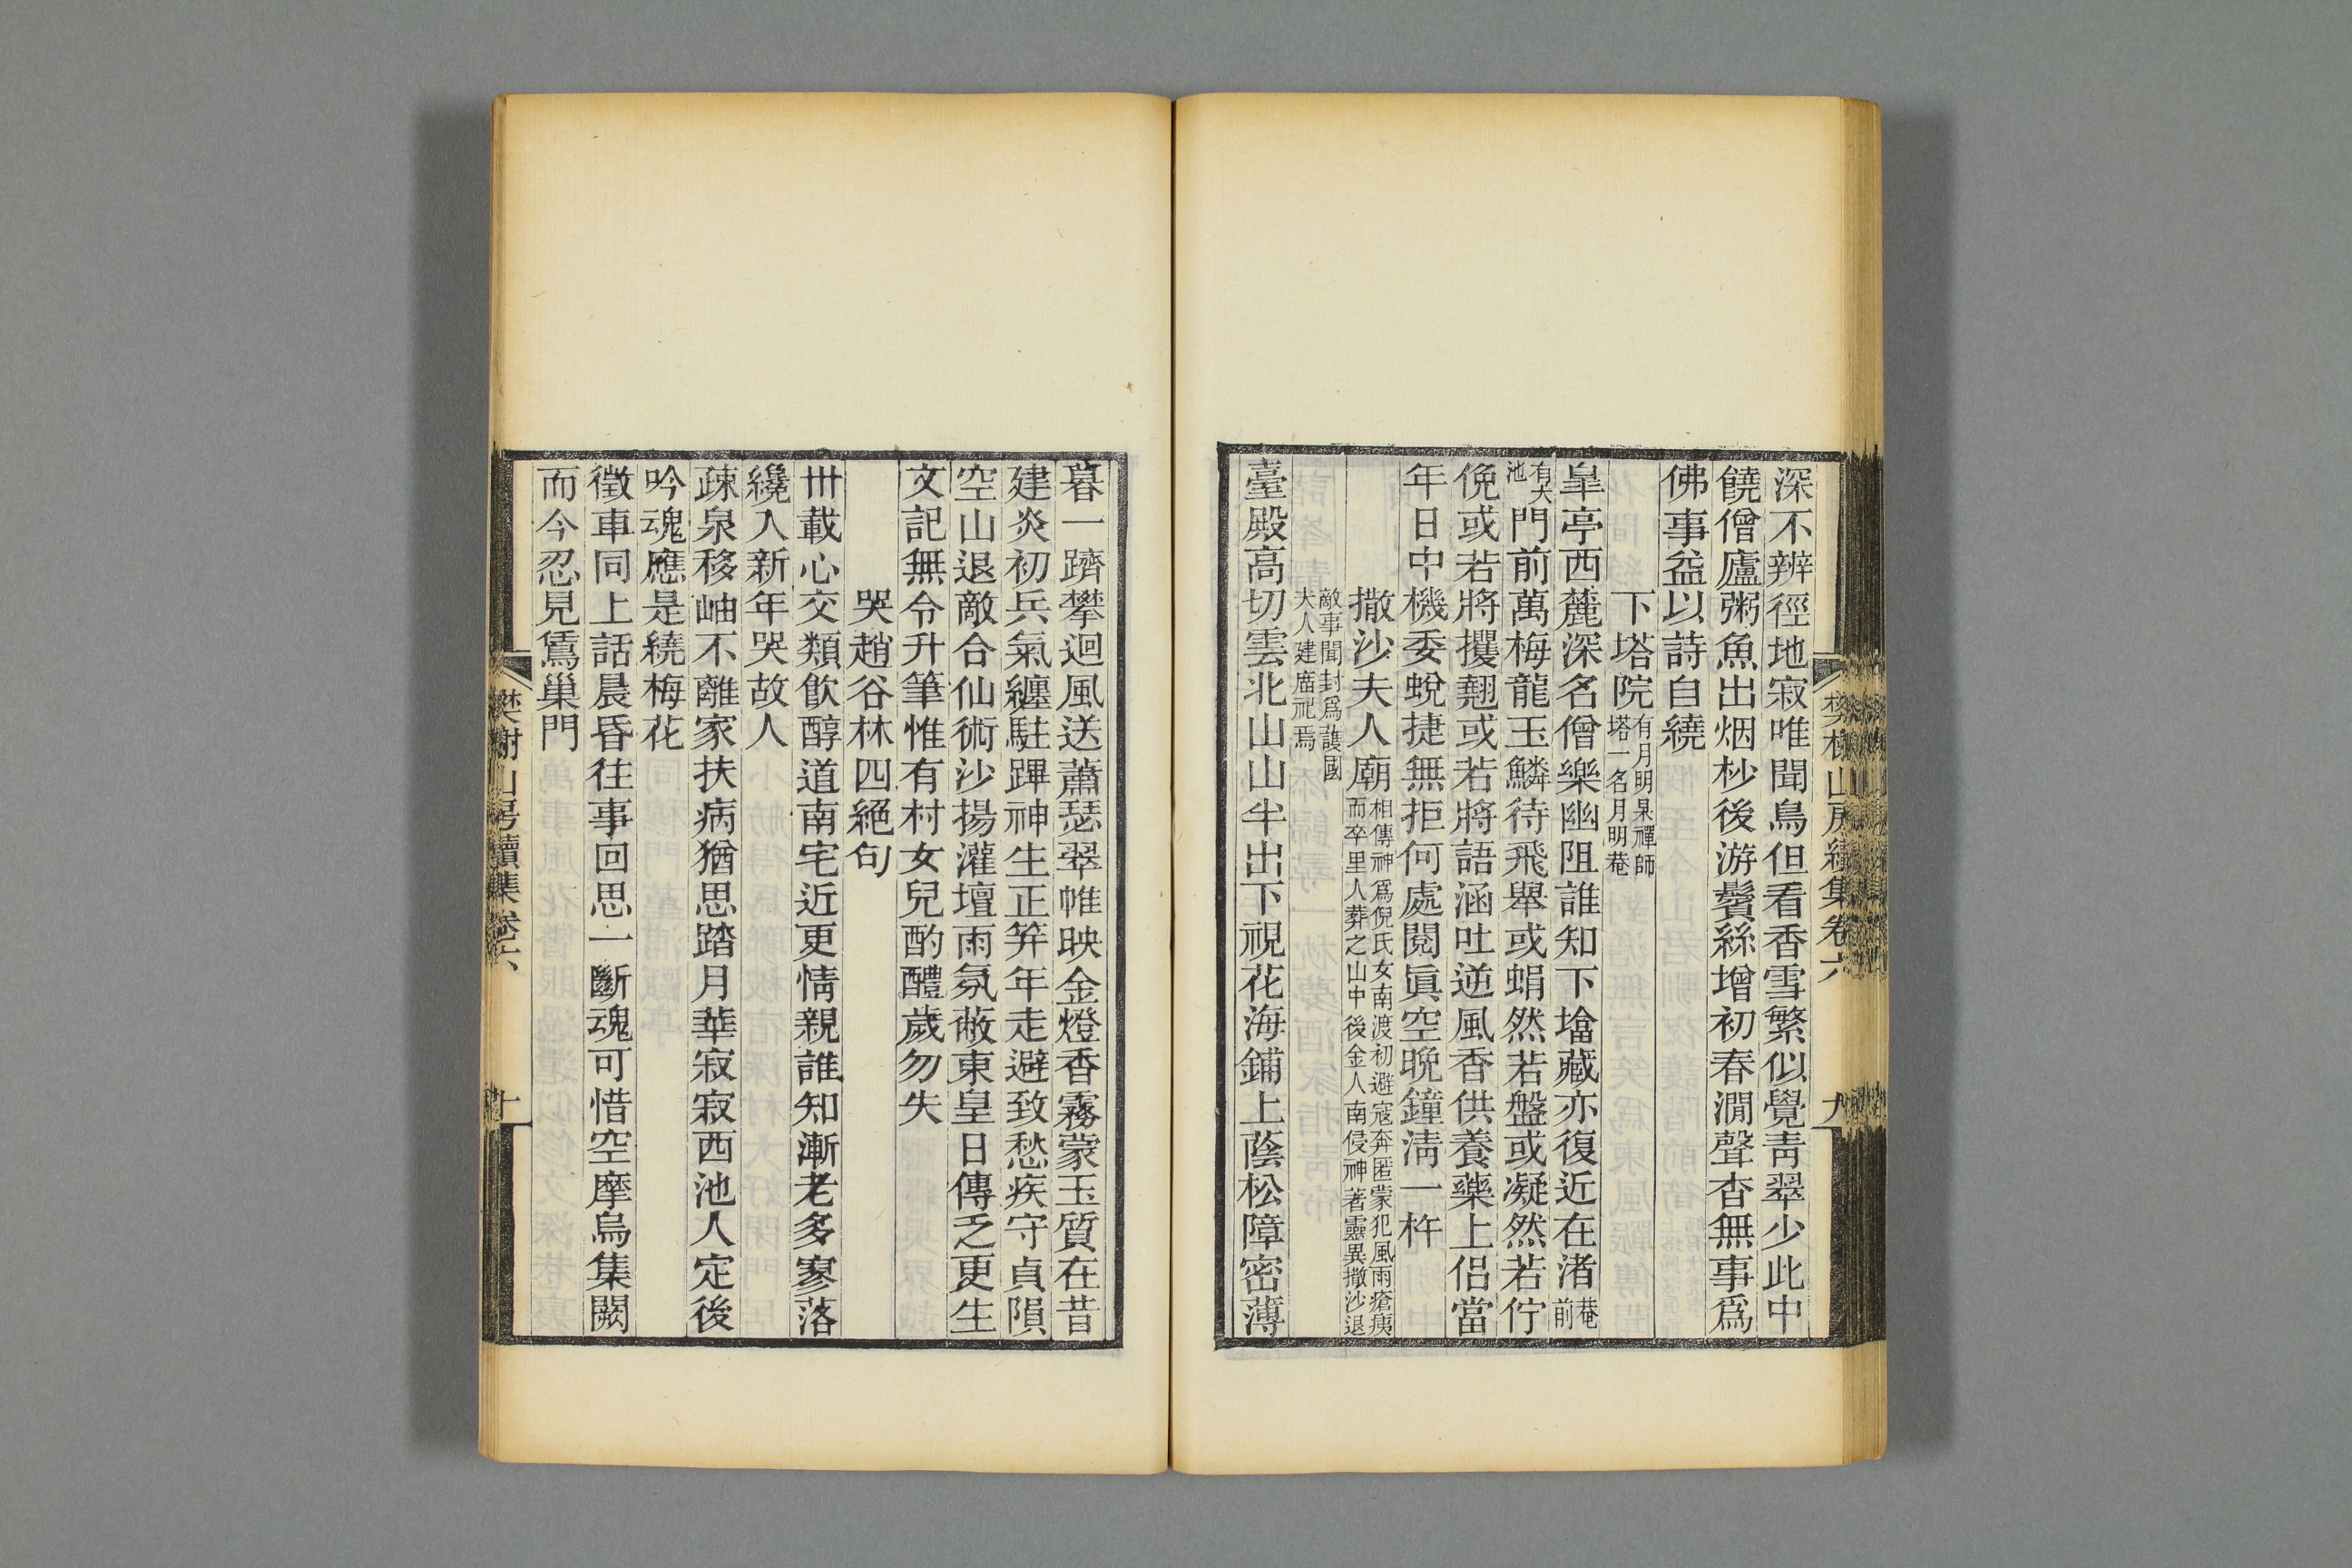 樊榭山房續集卷六 九
深不辨徑地寂唯聞鳥但看香雪繁似覺靑翠少此中
饒僧廬粥魚出烟杪後游鬢絲增初春澗聲杳無事爲
佛事益以詩自繞
下塔院有月明杲禪師塔一名月明菴
皐亭西麓深名僧樂幽阻誰知下墖藏亦復近在渚菴前
有大池門前萬梅龍玉鱗待飛舉或蜎然若盤或凝然若佇
俛或若將攫翹或若將語涵吐逆風香供養藥上侶當
年日中機委蛻捷無拒何處閱眞空晚鐘淸一杵
撒沙夫人廟相傳神爲倪氏女南渡初避寇奔匿蒙犯風雨瘡痍而卒里人葬之山中後金人南侵神著靈異撒沙退
敵事聞封爲護國夫人建廟祀焉
臺殿高切雲北山山半出下視花海鋪上蔭松障密薄
暮一躋攀迴風送蕭瑟翠帷映金燈香霧蒙玉質在昔
建炎初兵氣纏駐蹕神生正筓年走避致愁疾守貞隕
空山退敵合仙術沙揚灌壇雨氛蔽東皇日傳乏更生
文記無令升筆惟有村女兒酌醴歲勿失
哭趙谷林四絕句
卅載心交類飮醇道南宅近更情親誰知漸老多寥落
纔入新年哭故人
疎泉移岫不離家扶病猶思踏月華寂寂西池人定後
吟魂應是繞梅花
徵車同上話晨昏往事回思一斷魂可惜空摩烏集闕
而今忍見鴍巢門
樊榭山房續集卷六 十